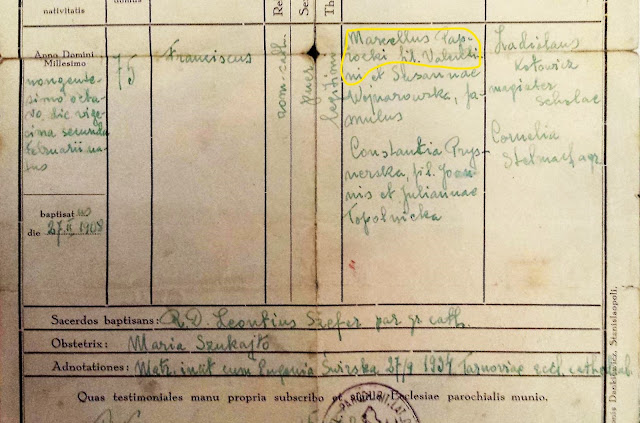 nativitatis
Anno Domini
Millesimo
nongente-
simo octa-
vo, die vige-
sima secunda
Februarii na-
tus
baptisatus
die 27.II.1908
75
Franciscus
rom.-cath.
puer
legitimi
Marcellus Pap-
rocki fil. Valenti-
ni et Susannae
Wojnarowska, fa-
mulus
Constantia Prys-
nerska, fil. Joan-
nis et Juliannae
Topolnicka
Ladislaus
Kotowicz
magister
scholae
Cornelia
Stelmach agr.
Sacerdos baptisans: R.D. Leontius Szefer par. gr. cath.
Obstetrix: Maria Szukajło
Adnotationes: Matr. iniit cum Eugenia Świrska 27/9 1934 Tarnoviae
Quas testimoniales manu propria subscribo et sigillo Ecclesiae parochialis munio.
Stanislaopoli.